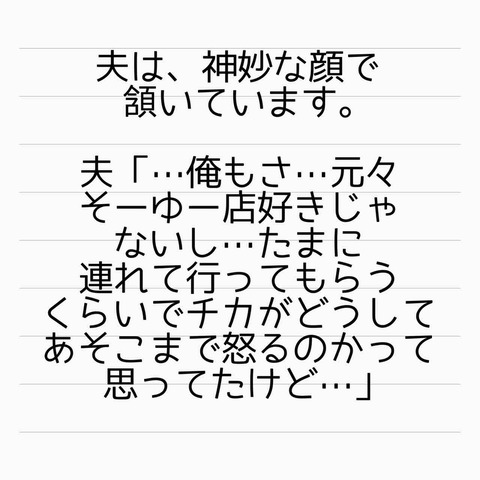 夫は、神妙な顔で
頷いています。
夫「…俺もさ…元々
そーゆー店好きじゃ
ないし…たまに
連れて行ってもらう
くらいでチカがどうして
あそこまで怒るのかって
思ってたけど…」